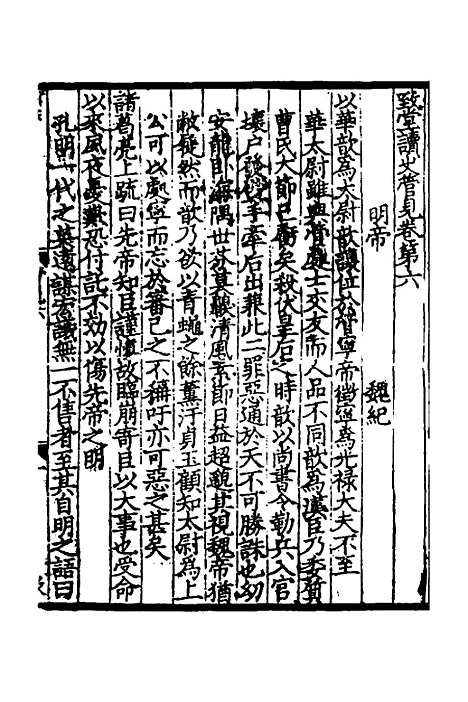 致堂讀史管見卷第六
明帝　魏紀
以華歆爲太尉歆讓位於管寧帝徵寧爲光禄大夫不至
華太尉雖與管處士交友而人品不同歆爲漢臣乃委質
曹氏大節已虧矣殺伏皇后之時歆以尚書令勒兵入官
壞户發壁手牽后出葬此二罪惡通於天不可勝誅也幼
安龍卧海隅世莫糞驗清風素節日益超貌其視魏帝猶
敝屣然而歆乃欲以青蠅之餘薰汙貞玉顧知太尉爲上
公可以處寧而忘於審己之不稱吁亦可惡之甚矣
諸葛亮上疏曰先帝知臣謹慎故臨崩寄臣以大事也受命
以來夙夜憂歎恐付託不効以傷先帝之明
孔明一代之英遠謀宏議無一不售者至其自明之語曰